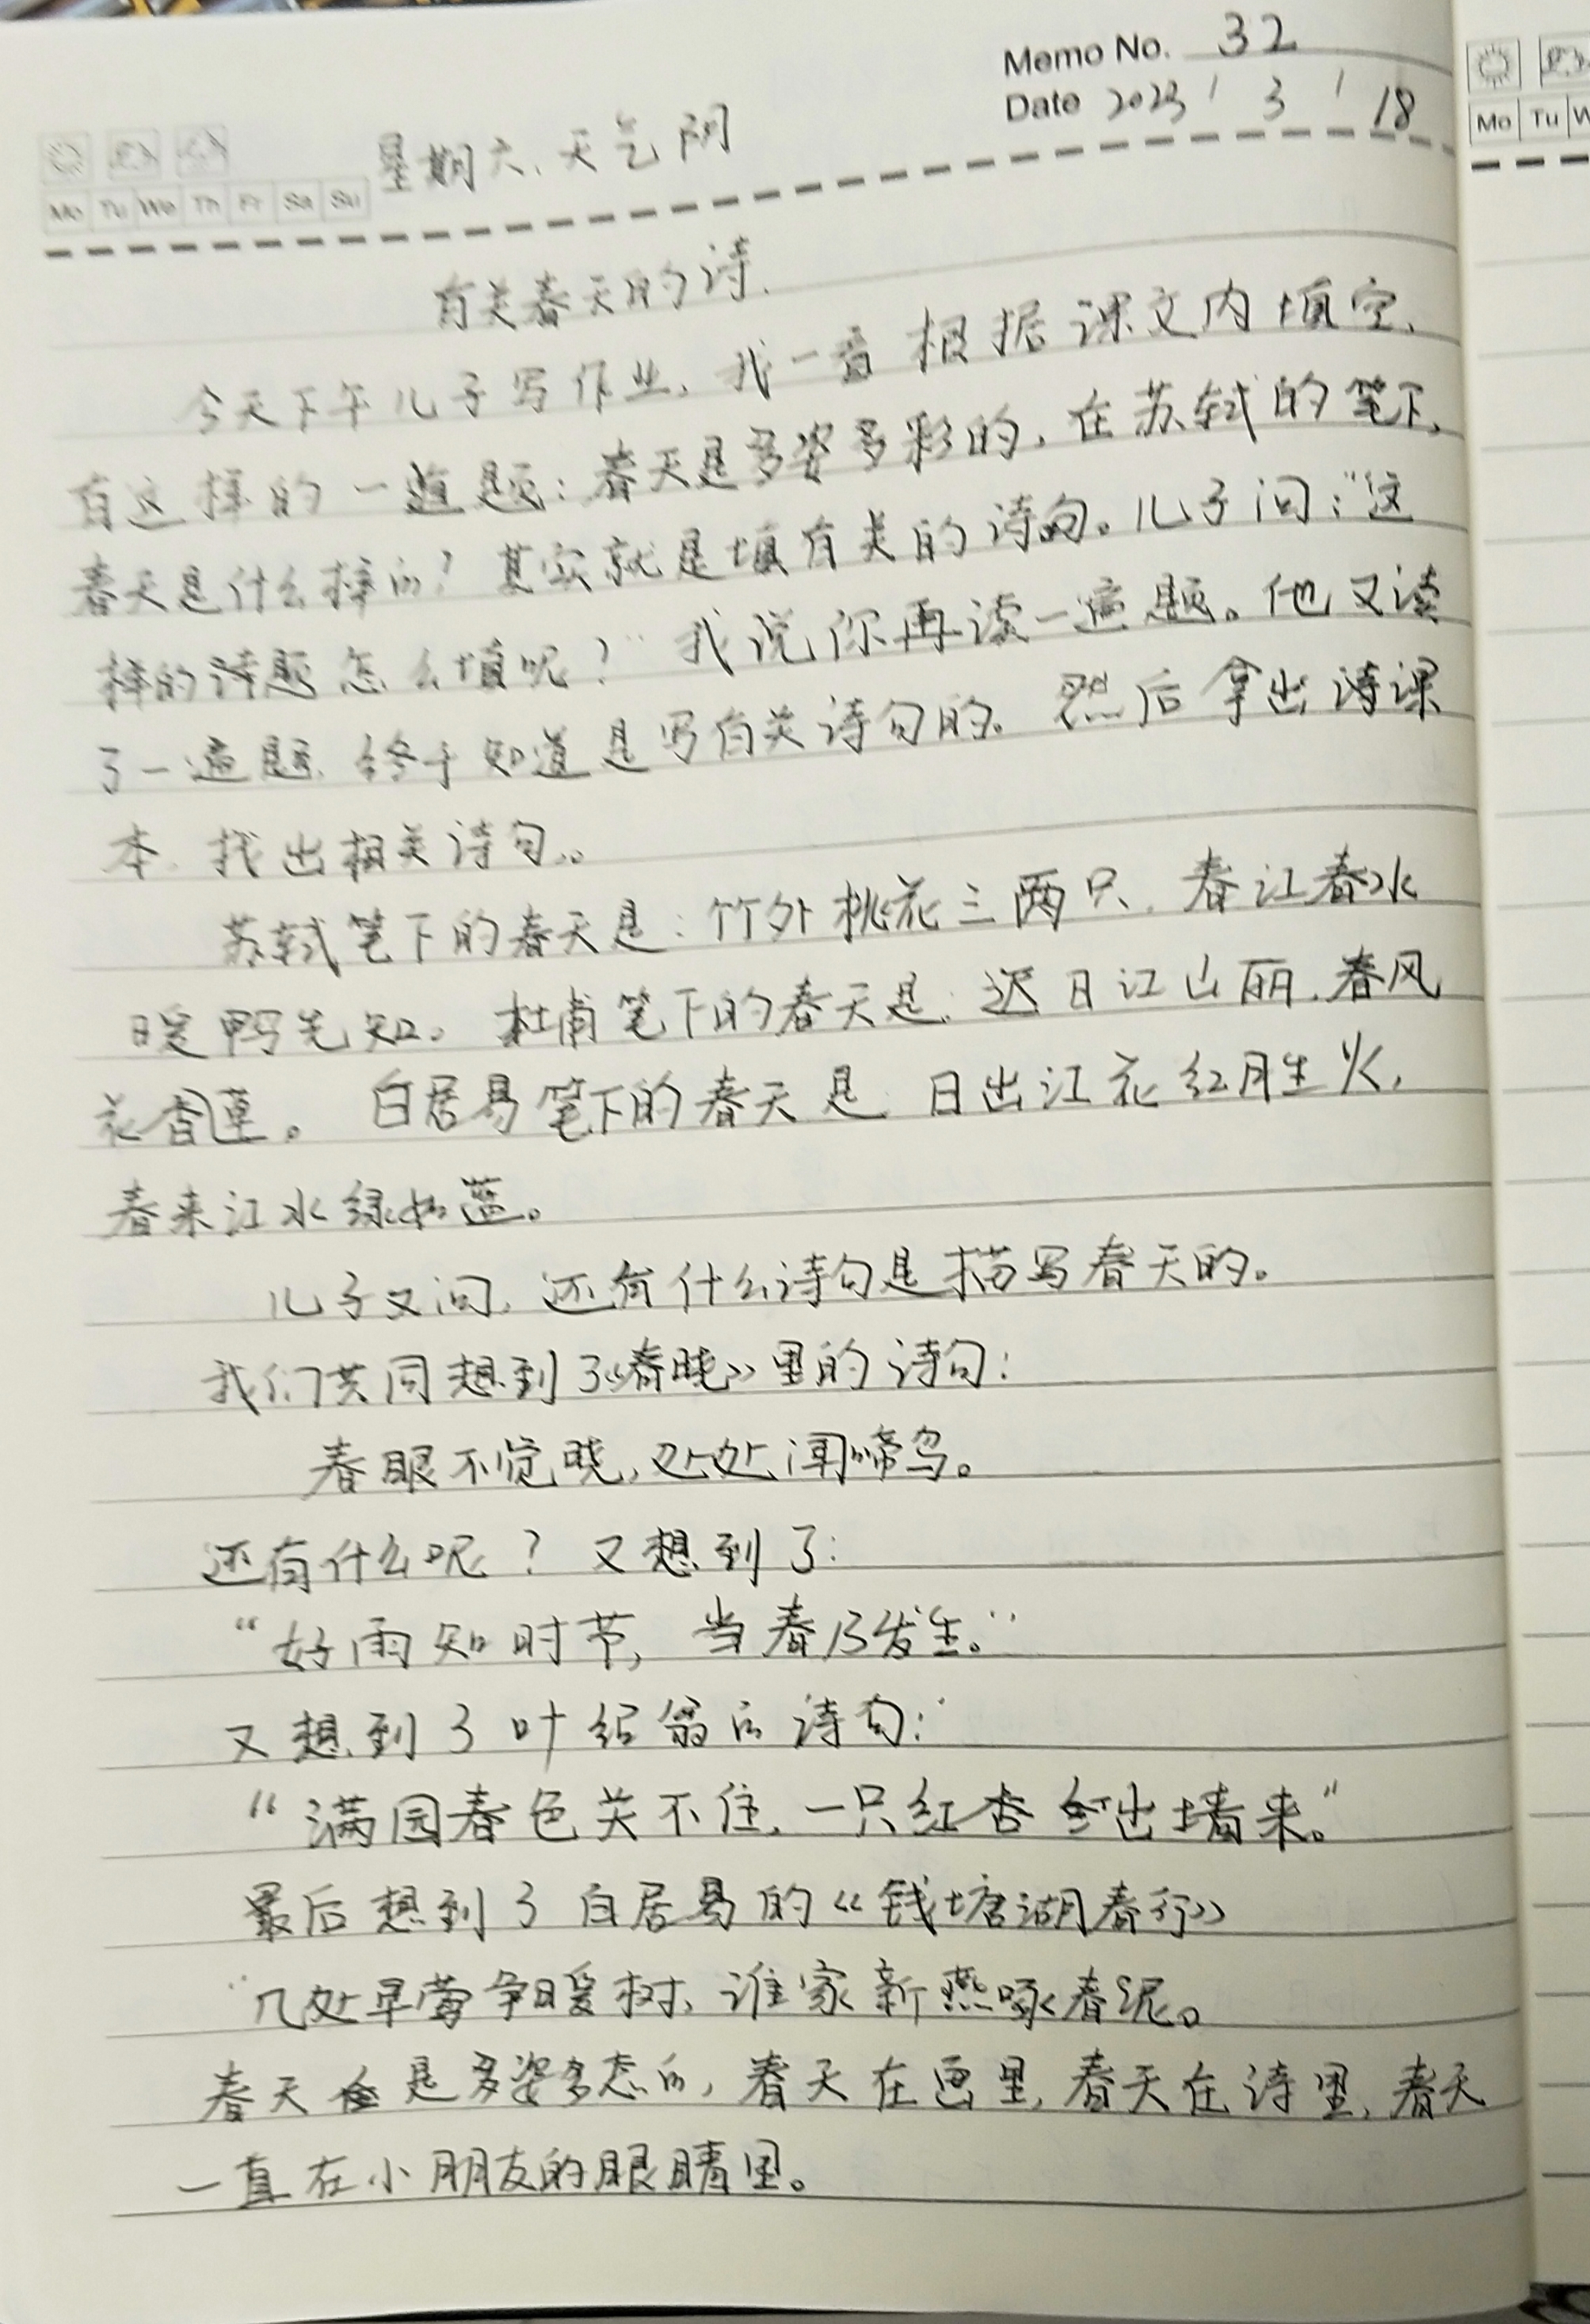 Memo No. 32
Date 2023 / 3 / 18
Mo Tu We Th Fr Sa Su
星期六. 天气 阴
Mo Tu
有关春天的诗.
今天下午儿子写作业, 我一看 根据课文内填空,
有这样的一道题: 春天是多姿多彩的, 在苏轼的笔下,
春天是什么样的? 其实就是填有关的诗句。儿子问:“这
样的诗题怎么填呢?” 我说你再读一遍题。他又读
了一遍题, 终于知道是写有关诗句的. 然后拿出诗课
本. 找出相关诗句。
苏轼笔下的春天是: 竹外桃花三两只, 春江春水
暖鸭先知。杜甫笔下的春天是: 迟日江山丽, 春风
花香草。 白居易笔下的春天是 日出江花红胜火,
春来江水绿如蓝。
儿子又问, 还有什么诗句是描写春天的。
我们共同想到了《春晓》里的诗句:
春眼不觉晓, 处处闻啼鸟。
还有什么呢? 又想到了:
“好雨知时节, 当春乃发生。”
又想到了叶绍翁的诗句:
“满园春色关不住, 一只红杏出墙来。”
最后想到了白居易的《钱塘湖春行》
“几处早莺争暖树, 谁家新燕啄春泥。
春天是多姿多态的, 春天在画里, 春天在诗里, 春天
一直在小朋友的眼睛里。